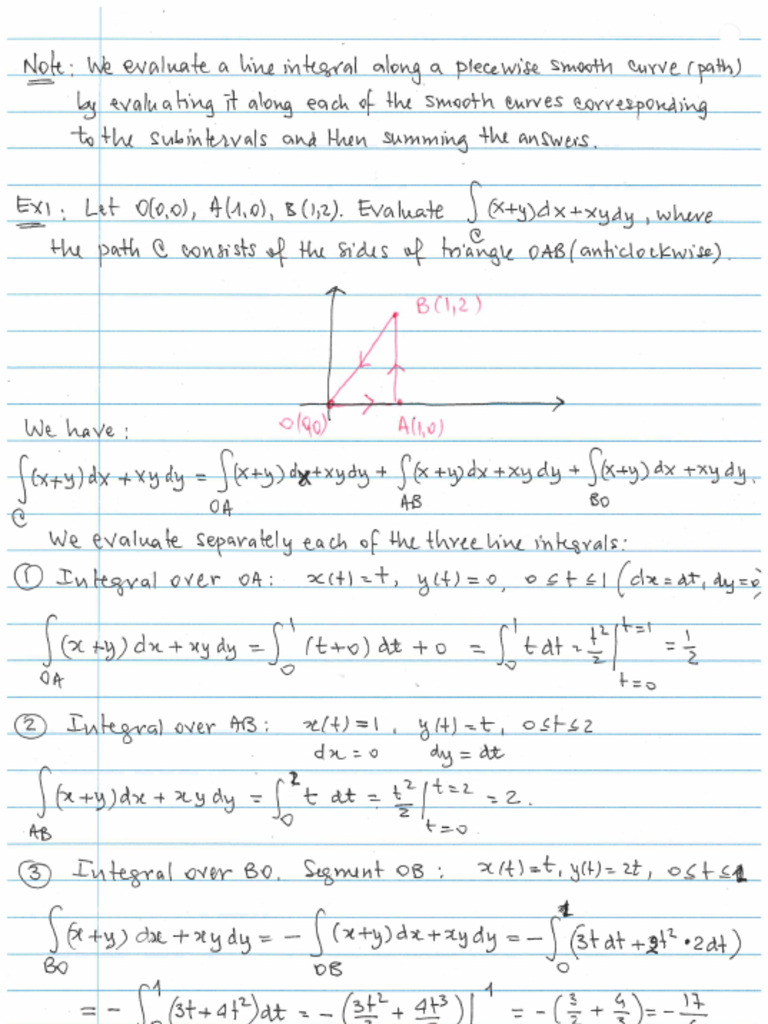 Note: We evaluate a line integral along a piecewise smooth curve (path)
by evaluating it along each of the smooth curves corresponding
to the subintervals and then summing the answers.
Ex1: Let O(0,0), A(1,0), B(1,2). Evaluate ∫_C (x+y)dx+xydy, where
the path C consists of the sides of triangle OAB (anticlockwise).
B(1,2)
O(0,0) A(1,0)
We have:
∫_C (x+y)dx+xydy = ∫_OA (x+y)dx+xydy + ∫_AB (x+y)dx+xydy + ∫_BO (x+y)dx+xydy.
We evaluate separately each of the three line integrals:
① Integral over OA: x(t)=t, y(t)=0, 0≤t≤1 (dx=dt, dy=0)
∫_OA (x+y)dx+xydy = ∫_0^1 (t+0)dt+0 = ∫_0^1 t dt = t²/2 |_{t=0}^{t=1} = 1/2
② Integral over AB: x(t)=1, y(t)=t, 0≤t≤2
dx=0 dy=dt
∫_AB (x+y)dx+xydy = ∫_0^2 t dt = t²/2 |_{t=0}^{t=2} = 2.
③ Integral over BO. Segment OB: x(t)=t, y(t)=2t, 0≤t≤1
∫_BO (x+y)dx+xydy = - ∫_OB (x+y)dx+xydy = - ∫_0^1 (3tdt+2t²·2dt)
= - ∫_0^1 (3t+4t²)dt = - (3t²/2 + 4t³/3)|^1 = - (3/2 + 4/3) = - 17/6